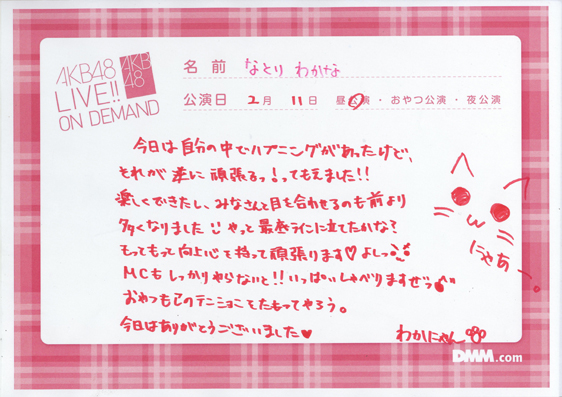 AKB48
LIVE!!
ON DEMAND
AKB
48
名前 なとり わかな
公演日 2月 11日 昼公演・おやつ公演・夜公演
今日は自分の中でハプニングがあったけど、
それが逆に頑張るっ!ってもえました!!
楽しくできたし、みなさんと目を合わせるのも前より
多くなりました やっと最低ラインに立てたかな?
もっともっと向上心を持って頑張ります♡ よしっ
MCもしっかりやらないと!!いっぱいしゃべりますぜっ
おやつもこのテンションをたもってやろう。
今日はありがとうございました♥
にゃあー。
わかにゃん
DMM.com